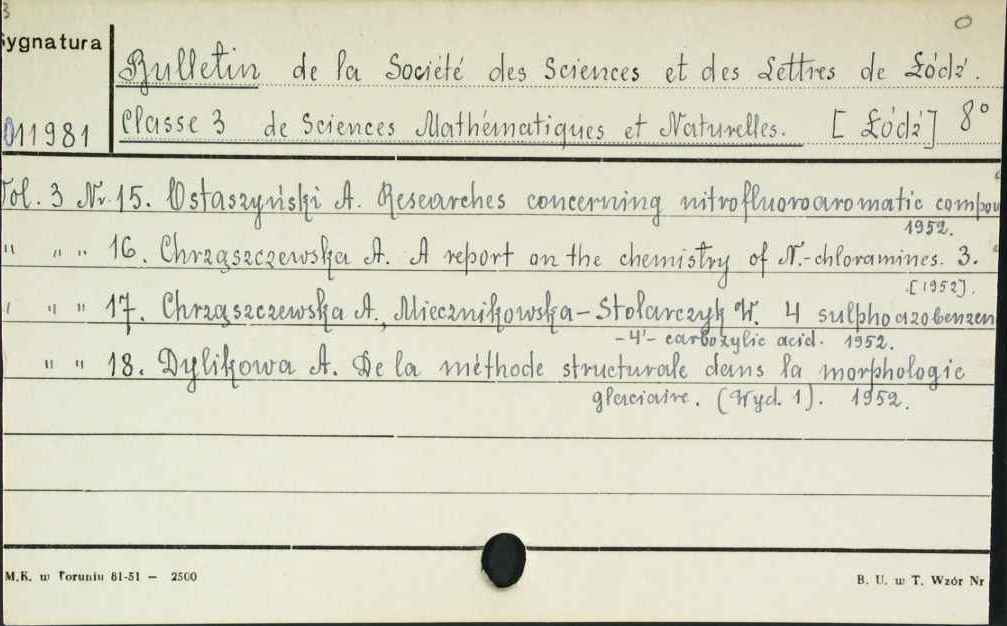 3
Sygnatura
Bulletin de la Société des Sciences et des Lettres de Łódź.
011981
Classe 3 de Sciences Mathématiques et Naturelles. [Łódź] 8°
Vol. 3 Nr. 15. Ostaszyński A. Researches concerning nitrofluoroaromatic compou
1952.
" " " 16. Chrząszczewska A. A report on the chemistry of N.-chloramines. 3.
[1952].
" " " 17. Chrząszczewska A., Miecznikowska-Stolarczyk W. 4 sulphoazobenzen
-4'- carboxylic acid. 1952.
" " 18. Dylikowa A. De la méthode structurale dans la morphologie
glaciaire. (Wyd. 1). 1952.
M.K. w Toruniu 61-51 — 2500
B. U. w T. Wzór Nr